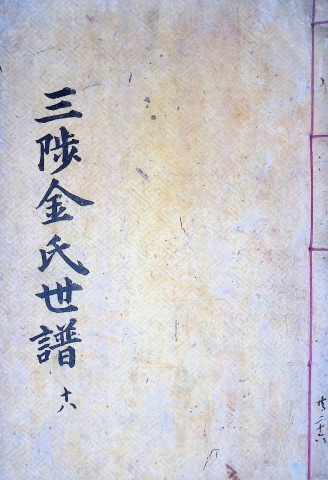 三陟金氏世譜
十八
共二十六